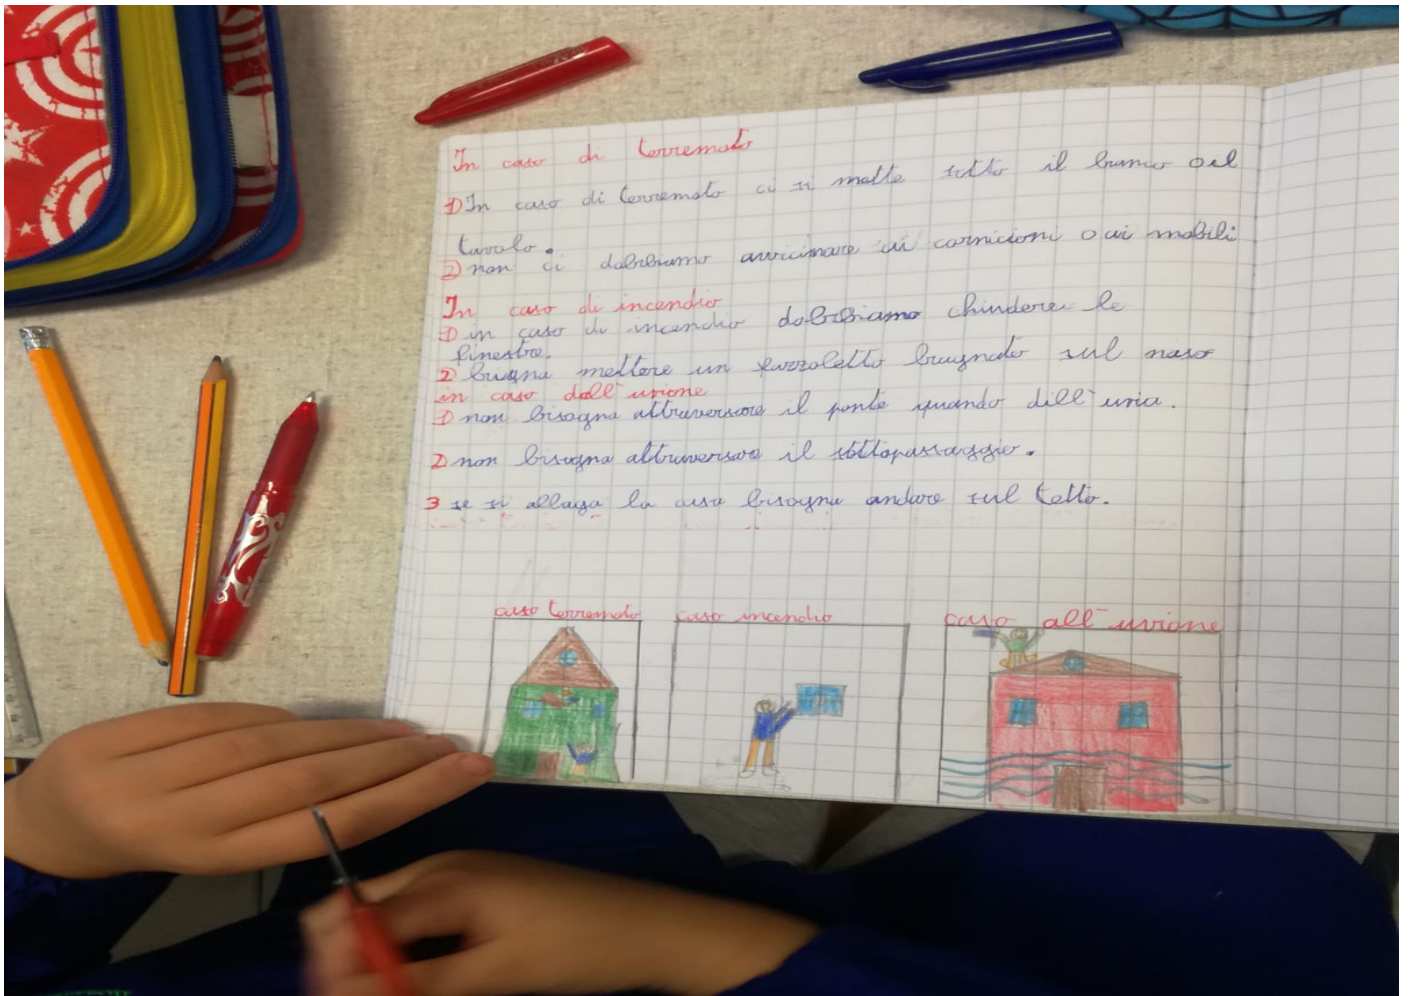 In caso di terremoto
1) In caso di terremoto ci si mette sotto il banco o il
tavolo.
2) non ci dobbiamo avvicinare ai cornicioni o ai mobili
In caso di incendio
1) in caso di incendio dobbiamo chiudere le
finestre.
2) bisogna mettere un fazzoletto bagnato sul naso
in caso dall'uvione
1) non bisogna attraversare il ponte quando dill'uvia.
2) non bisogna attraversare il sottopassaggio.
3 se si allaga la casa bisogna andare sul tetto.
caso terremoto caso incendio caso all'uvione